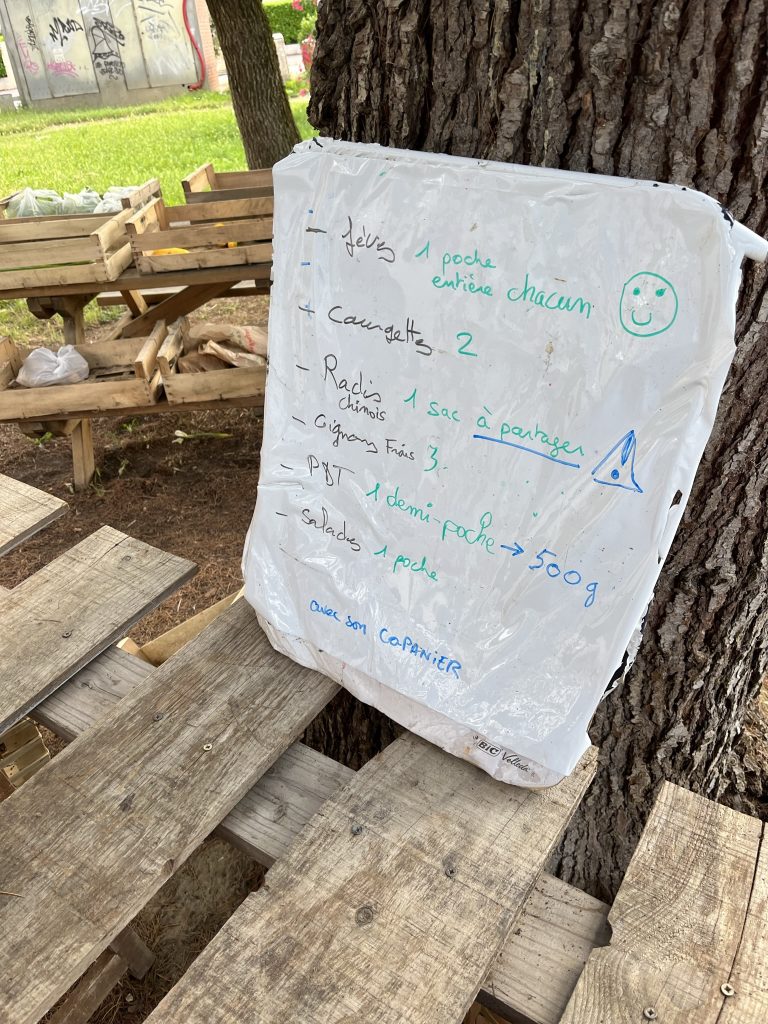 - fèves 1 poche
entière chacun
- Courgettes 2
- Radis
chinois 1 sac à partager !
- Oignons Frais 3
- PDT 1 demi-poche → 500g
- salades 1 poche
avec son COPANIER
BIC Velleda